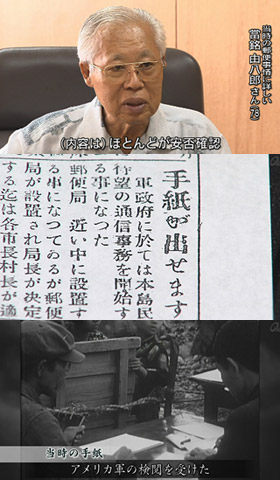 当時の郵便事情に詳しい
當銘 由八郎さん
(内容は) ほとんどが安否確認
手紙が出せます
軍政府に於ては本島民
待望の通信事務を開始す
る事になつた
郵便局は近い中に設置す
る事になつてゐるが郵便
局が設置され局長が決定
する迄は各市長村長が適
当時の手紙
アメリカ軍の検閲を受けた